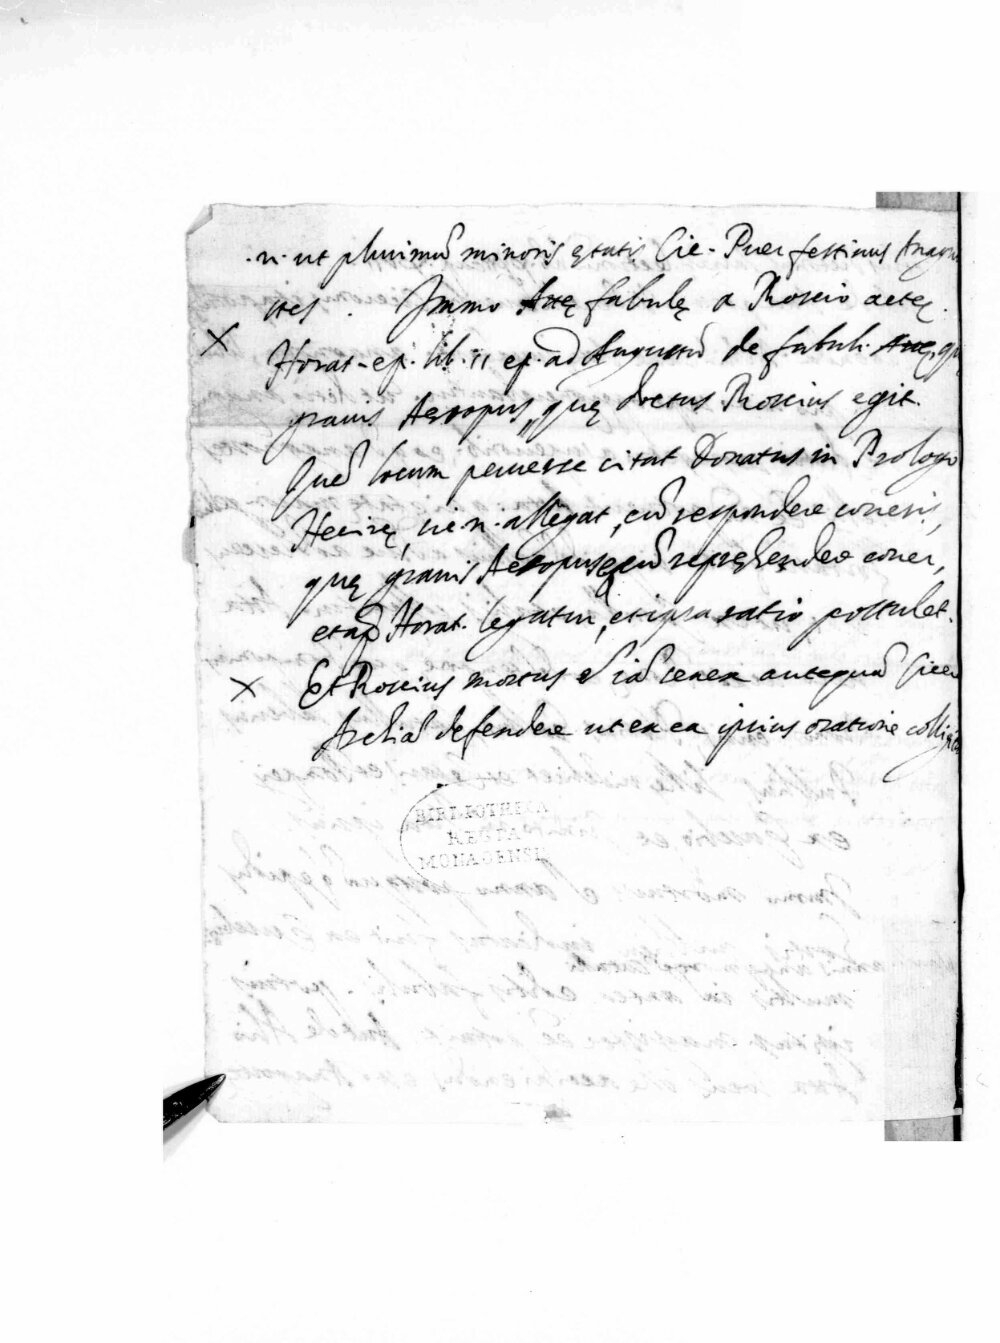 .n. ut plurimū minoris ętatis Cic. Puer festivus Anagn
stes. Immo Attę fabulę a Roscio actę.
Horat. ep. lib. II ep. ad Augustū de fabul. Attę, q
gravis Aesopus, quę doctus Roscius egit.
Quē locum perverse citat Donatus in Prologo
Hecirę, sic .n. allegat, cū respondere coneris,
quę gravis Aesopus cū repręhendere coner,
et Horat. legatur, et ipsa ratio postulet.
Et Roscius mortus ē iā senex antequā Cicer
Archiā defendere ut ex ea ipsius oratione collig
BIBLIOTHECA
REGIA
MONACENSIS